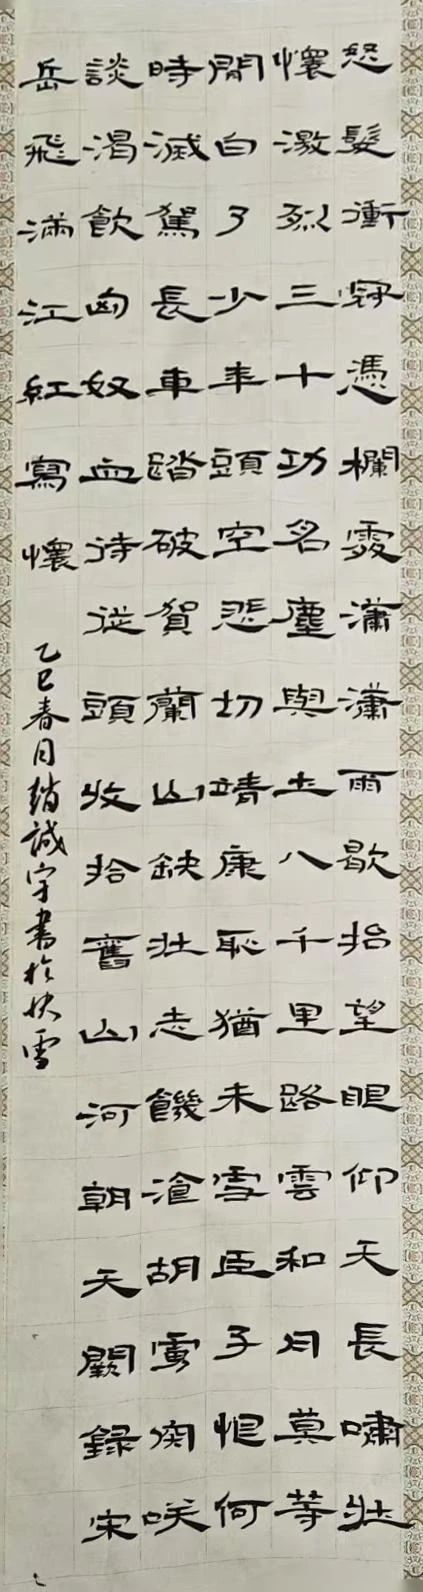 怒髮衝冠憑欄處瀟瀟雨歇抬望眼仰天長嘯壯
懷激烈三十功名塵與土八千里路雲和月莫等
閒白了少年頭空悲切靖康恥猶未雪臣子恨何
時滅駕長車踏破賀蘭山缺壯志饑湌胡虜肉笑
談渴飲匈奴血待從頭收拾舊山河朝天闕錄宋
岳飛滿江紅寫懷
乙巳春月趙誠宇書於快雪